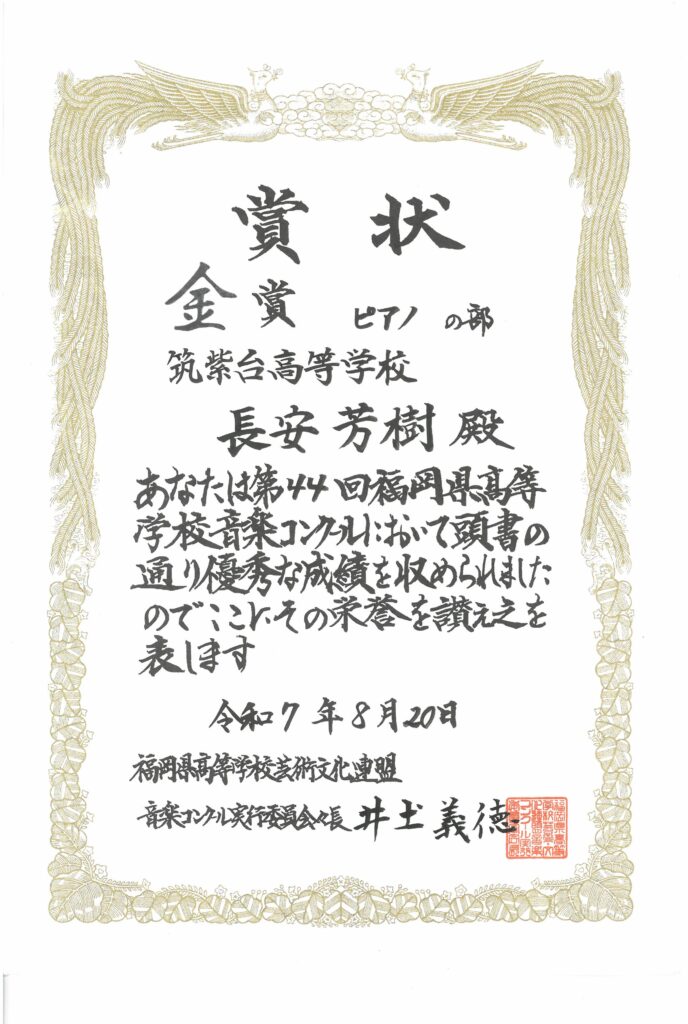 賞状
金賞 ピアノ の部
筑紫台高等学校
長安芳樹殿
あなたは第44回福岡県高等
学校音楽コンクールにおいて頭書の
通り優秀な成績を収められました
のでここにその栄誉を讃え之を
表します
令和7年8月20日
福岡県高等学校芸術文化連盟
音楽コンクール実行委員会々長 井土義徳